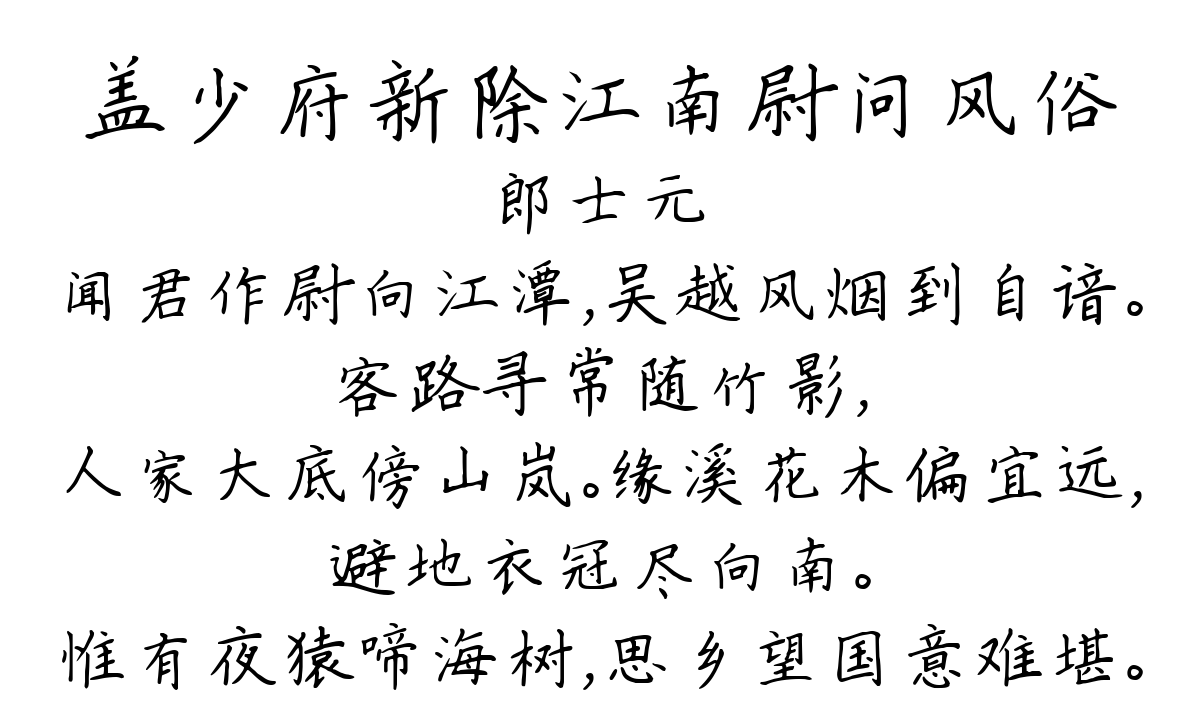 盖少府新除江南尉问风俗
郎士元
闻君作尉向江潭,吴越风烟到自谙。
客路寻常随竹影,
人家大底傍山岚。缘溪花木偏宜远,
避地衣冠尽向南。
惟有夜猿啼海树,思乡望国意难堪。